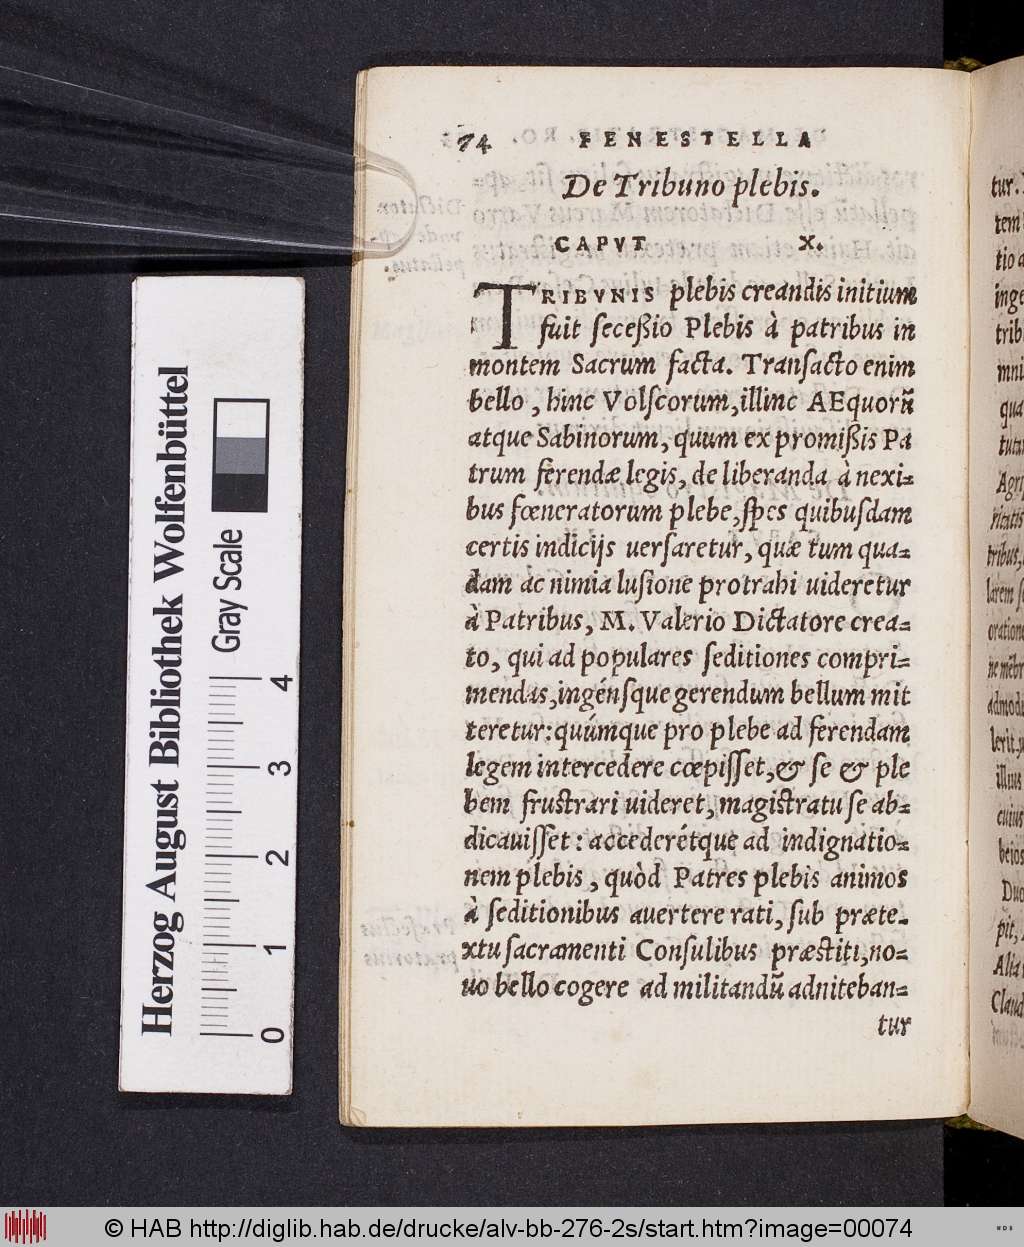 74 FENESTELLA
De Tribuno plebis.
CAPVT X.
TRIBVNIS plebis creandis initium
fuit seceßio Plebis à patribus in
montem Sacrum facta. Transacto enim
bello, hinc Volscorum, illinc AEquorũ
atque Sabinorum, quum ex promißis Pa
trum ferendæ legis, de liberanda à nexi-
bus fœneratorum plebe, spes quibusdam
certis indicijs uersaretur, quæ tum qua-
dam ac nimia lusione protrahi uideretur
à Patribus, M. Valerio Dictatore crea-
to, qui ad populares seditiones compri-
mendas, ingénsque gerendum bellum mit
teretur: quúmque pro plebe ad ferendam
legem intercedere cœpisset, & se & ple
bem frustrari uideret, magistratu se ab-
dicauisset: accederétque ad indignatio-
nem plebis, quòd Patres plebis animos
à seditionibus auertere rati, sub præte-
xtu sacramenti Consulibus præstiti, no-
uo bello cogere ad militandũ adniteban-
tur
tur.
tem
tio a
inge
trib
mni
qua
Agri
tribus,
illius
cuius
beios
Duo
pit,
Alia
Claud
Herzog August Bibliothek Wolfenbüttel
Gray Scale
0 1 2 3 4
© HAB http://diglib.hab.de/drucke/alv-bb-276-2s/start.htm?image=00074
WDB